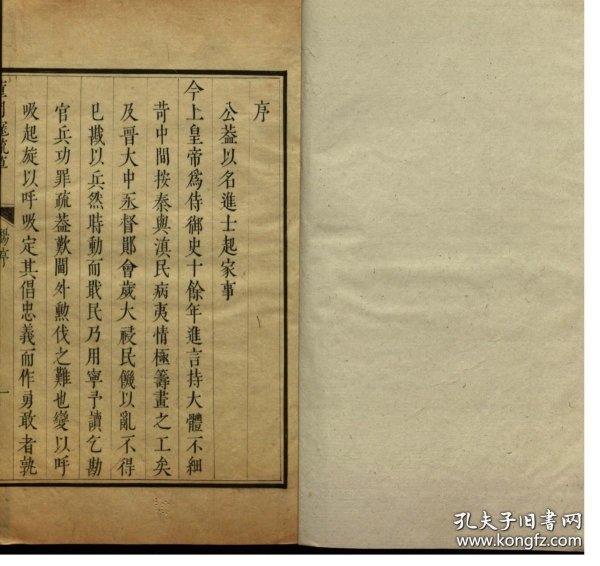 序
公葢以名進士起家事
今上皇帝爲侍御史十餘年進言持大體不細
苛中間按秦與滇民病夷情極籌畫之工矣
及晋大中丞督鄖會歲大祲民饑以亂不得
已戡以兵然時動而戢民乃用寧予讀乞勘
官兵功罪疏葢歎閫外勲伐之難也變以呼
吸起旋以呼吸定其倡忠義而作勇敢者孰
楊序
一
孔夫子旧书网
www.kongfz.com